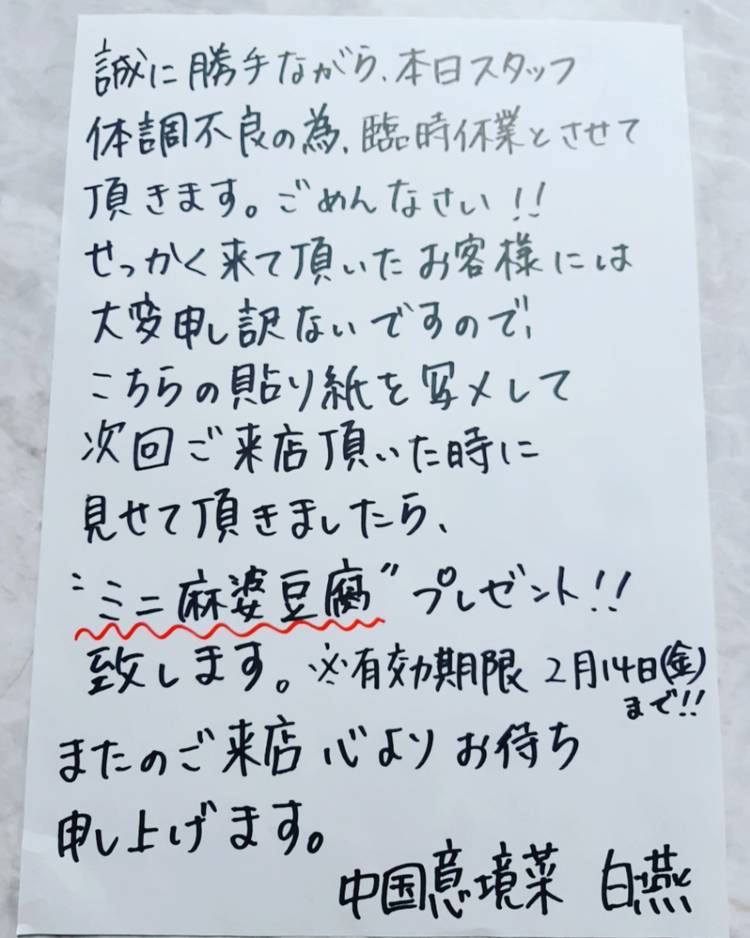 誠に勝手ながら、本日スタッフ
体調不良の為、臨時休業とさせて
頂きます。ごめんなさい!!
せっかく来て頂いたお客様には
大変申し訳ないですので、
こちらの貼り紙を写メして
次回ご来店頂いた時に
見せて頂きましたら、
"ミニ麻婆豆腐"プレゼント!!
致します。※有効期限 2月14日(金)
まで!!
またのご来店 心より お待ち
申し上げます。
中国意境菜 白燕